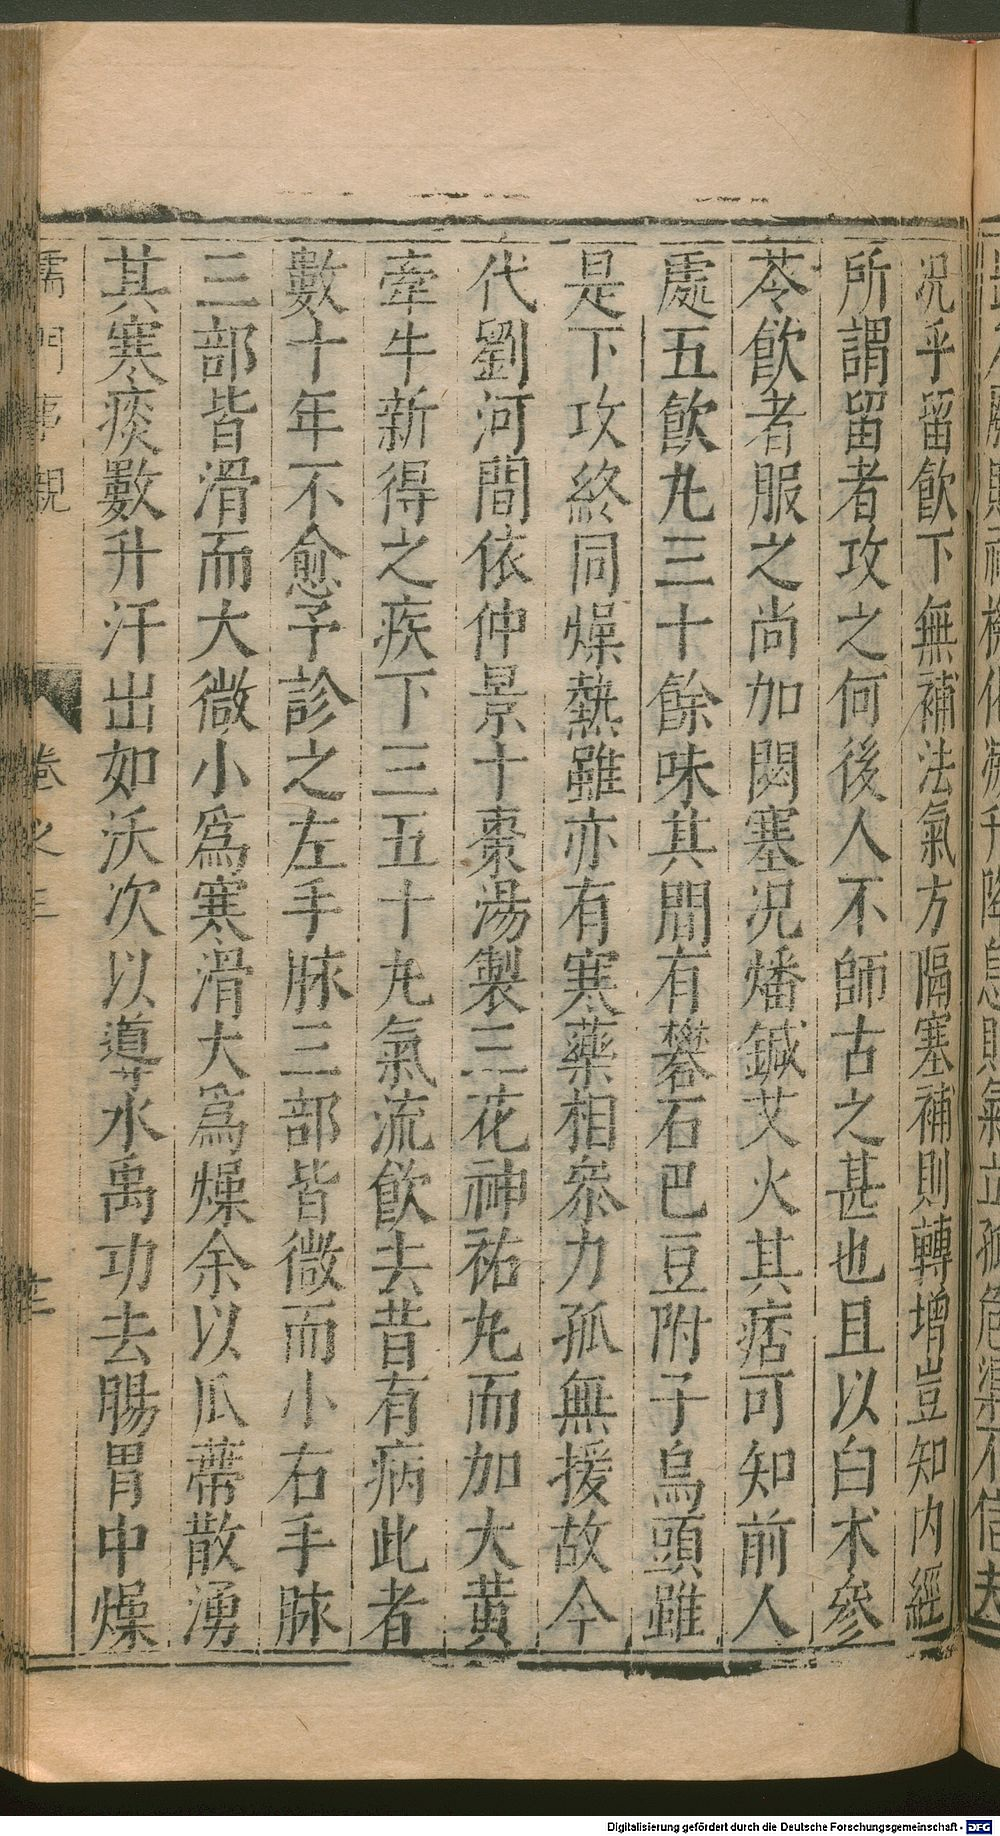 况乎留飲下無補法氣方隔塞補則轉增豈知内經
所謂留者攻之何後人不師古之甚也且以白术參
苓飲者服之尚加閟塞况燔鍼艾火其痞可知前人
處五飲丸三十餘味其間有礬石巴豆附子烏頭雖
是下攻終同燥熱雖亦有寒藥相叅力孤無援故今
代劉河間依仲景十棗湯製三花神祐丸而加大黄
牽牛新得之疾下三五十丸氣流飲去昔有病此者
數十年不愈予診之左手脉三部皆微而小右手脉
三部皆滑而大微小爲寒滑大爲燥余以瓜蒂散湧
其寒痰數升汗出如沃次以導水禹功去腸胃中燥
儒門事親 卷之三
Digitalisierung gefördert durch die Deutsche Forschungsgemeinschaft - DFG